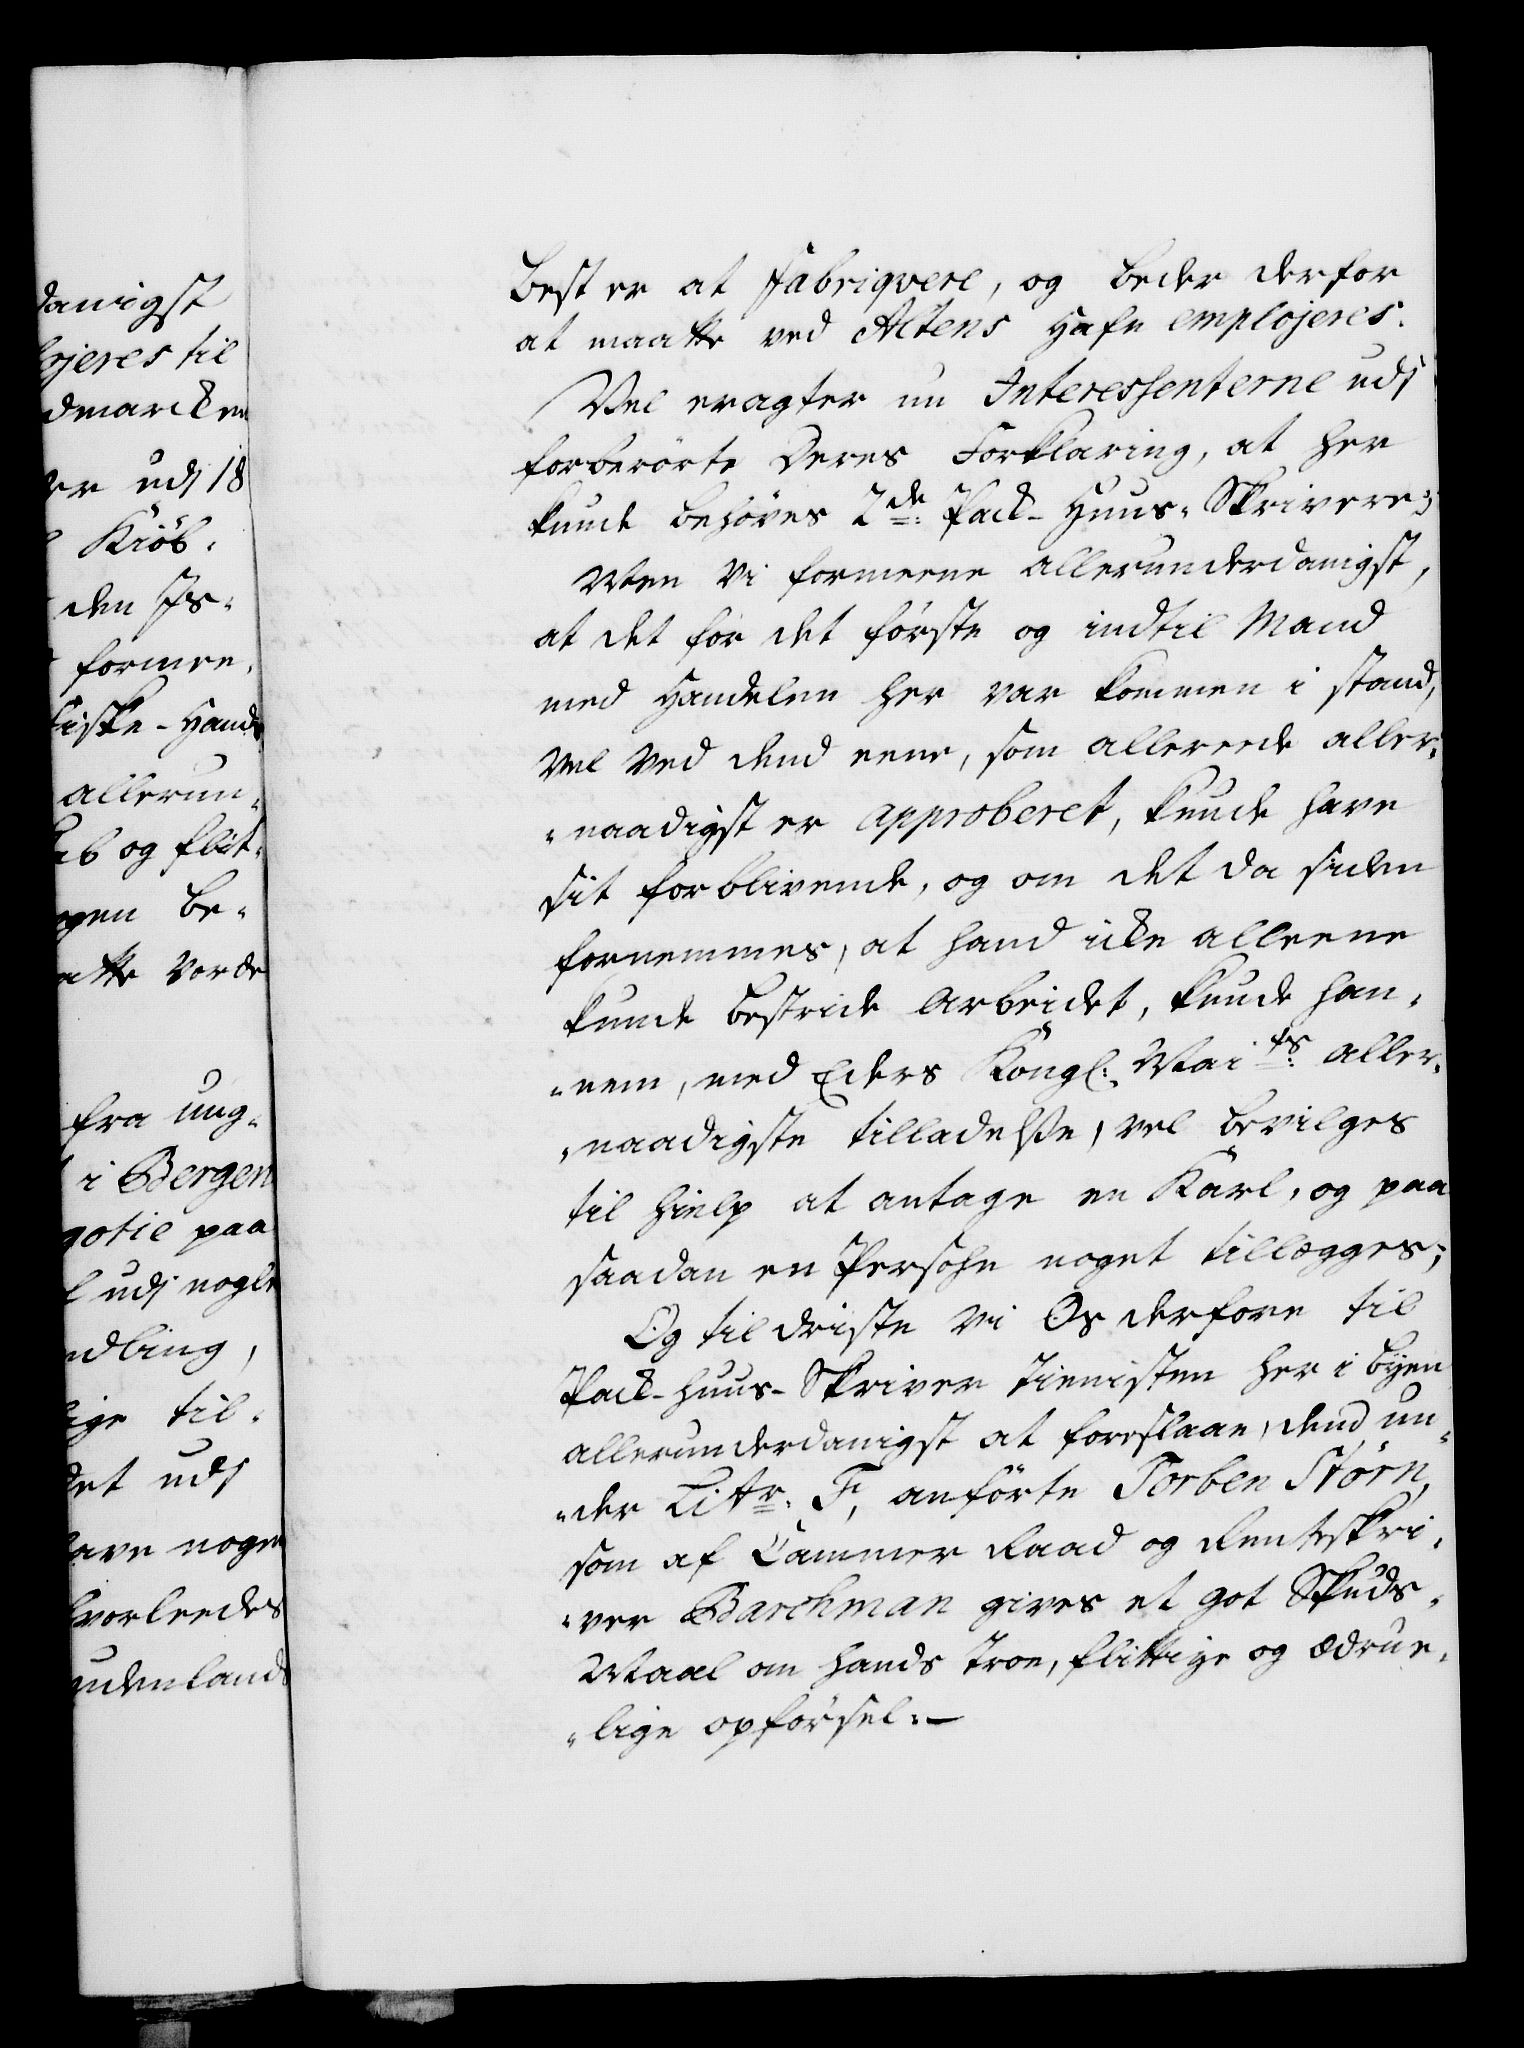 danigst
ojeres til
dmarcken
er udj 18
Kiöb-
den Is-
formee-
Fiske-Hand
allerun-
ab og flit-
ogen be-
atte vorde
fra ung-
i Bergen
gotie paa
l udj nogle
ndling,
lige til-
det udj
have nogen
hvorleedes
udenlands
best er at Fabriqvere, og beder derfor
at maatte ved Altens Hafn employeres.
Vel eragter nu Interessenterne udj
forberörte Deres Forklaring, at her
kunde behöves 2de Pack-Huus-Skrivere;
Men Vi formeene allerunderdanigst,
at det for det förste og indtil Mand
med Handelen her var kommen i stand,
vel ved dend eene, som allereede aller-
-naadigst er approberet, kunde have
sit forblivende, og om det da siden
fornemmes, at hand icke alleene
kunde bestride Arbeidet, kunde han-
-nem, med Eders Kongl: Maits aller-
-naadigste tilladelsse, vel bevilges
til hielp at antage en Karl, og paa
saadan en Persohn noget tillægges;
Og tildriste Vi Os derfore til
Pack-huus-Skriver tienisten her i byen
allerunderdanigst at foreslaae, dend un-
-der Litr. F, anförte Torben Störn,
som af Cammer Raad og Renteskri-
-ver Barchman gives et got Skuds-
Maal om hands troe, flittige og ædrue-
-lige opförsel.-